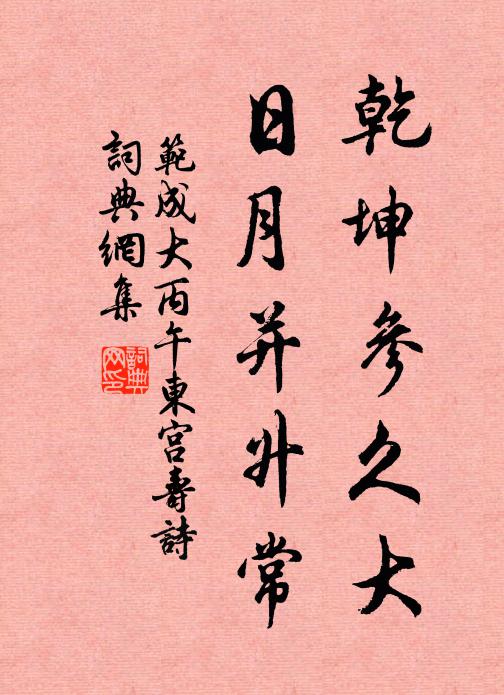 乾坤參久大
日月并升常
範成大丙午東宮壽詩
詞典網集
詞典網印